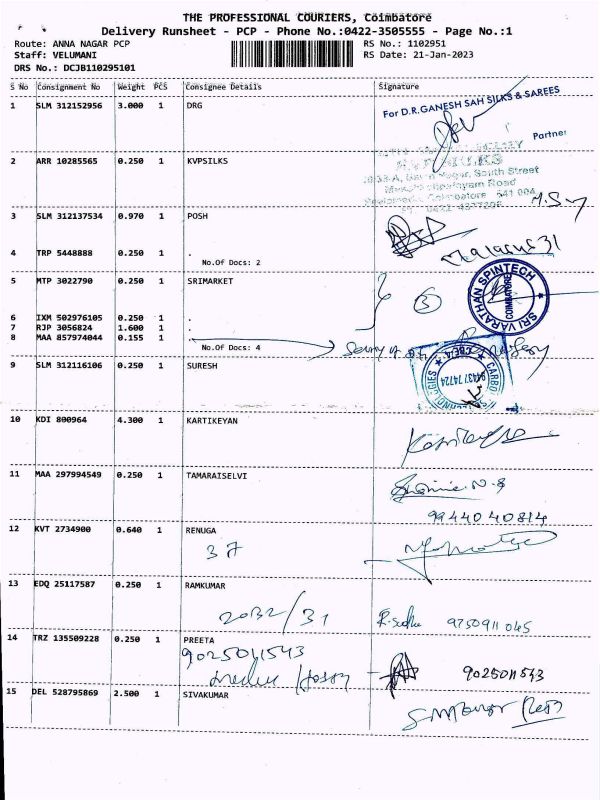 THE PROFESSIONAL COURIERS, Coimbatore
Delivery Runsheet - PCP - Phone No.:0422-3505555 - Page No.:1
Route: ANNA NAGAR PCP
RS No.: 1102951
Staff: VELUMANI
RS Date: 21-Jan-2023
DRS No.: DCJB110295101
S No Consignment No Weight PCS Consignee Details Signature
1 SLM 312152956 3.000 1 DRG
For D.R.GANESH SAH SILKS & SAREES
Partner
2 ARR 10285565 0.250 1 KVPSILKS
South Street
3 SLM 312137534 0.970 1 POSH
4 TRP 5448888 0.250 1 .
No.Of Docs: 2
5 MTP 3022790 0.250 1 SRIMARKET
SRI VARATHAN SPINTECH
COIMBATORE
5
6 IXM 502976105 0.250 1 .
7 RJP 3056824 1.600 1 .
8 MAA 857974044 0.155 1 .
No.Of Docs: 4
9 SLM 312116106 0.250 1 SURESH
9443774724
10 KDI 800964 4.300 1 KARTIKEYAN
11 MAA 297994549 0.250 1 TAMARAISELVI
9944040814
12 KVT 2734900 0.640 1 RENUGA
37
13 EDQ 25117587 0.250 1 RAMKUMAR
2032/31
R.Sudha 9750911045
14 TRZ 135509228 0.250 1 PREETA
9025011543
9025011543
15 DEL 528795869 2.500 1 SIVAKUMAR